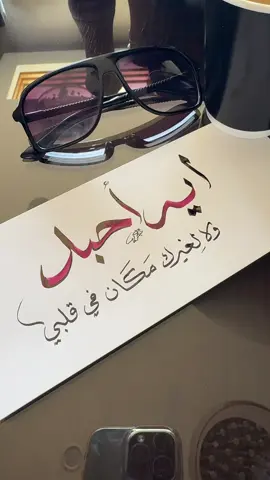 أيه أحبك
ولا لغيرك مَكَان في قلبي